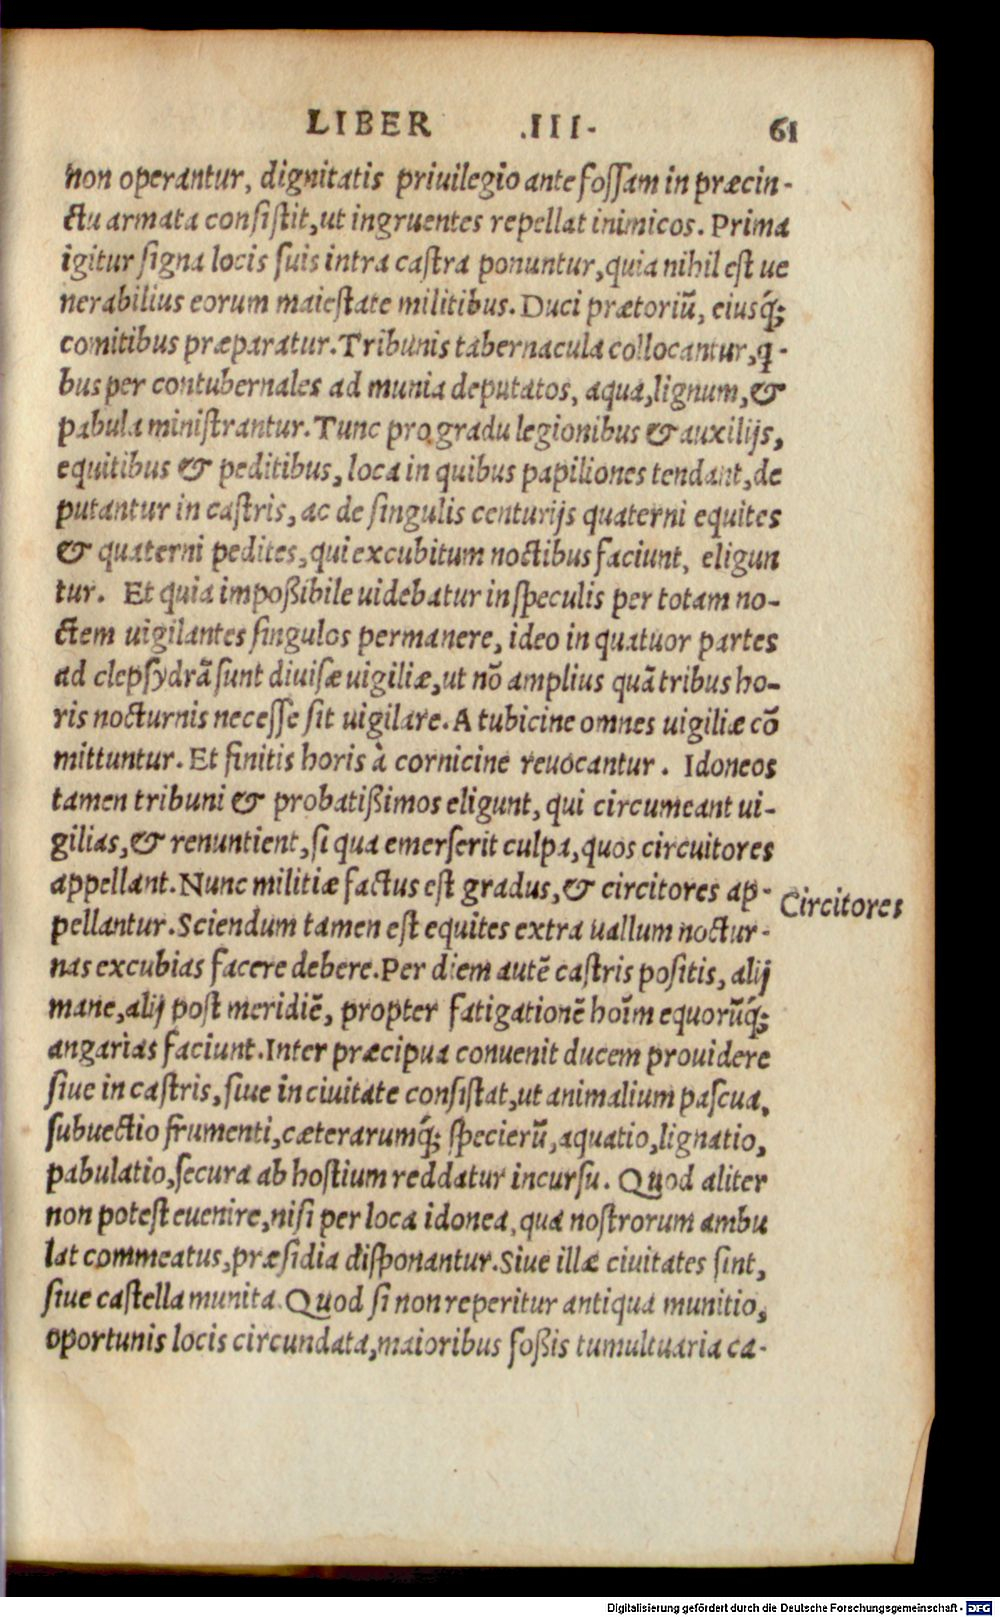 LIBER .III. 61
non operantur, dignitatis priuilegio ante fossam in præcin-
ctu armata consistit, ut ingruentes repellat inimicos. Prima
igitur signa locis suis intra castra ponuntur, quia nihil est ue
nerabilius eorum maiestate militibus. Duci prætoriũ, eiusq́;
comitibus præparatur. Tribunis tabernacula collocantur, q-
bus per contubernales ad munia deputatos, aqua, lignum, &
pabula ministrantur. Tunc pro gradu legionibus & auxilijs,
equitibus & peditibus, loca in quibus papiliones tendant, de
putantur in castris, ac de singulis centurijs quaterni equites
& quaterni pedites, qui excubitum noctibus faciunt, eligun
tur. Et quia impoßibile uidebatur in speculis per totam no-
ctem uigilantes singulos permanere, ideo in quatuor partes
ad clepsydrã sunt diuisæ uigiliæ, ut nõ amplius quã tribus ho-
ris nocturnis necesse sit uigilare. A tubicine omnes uigiliæ cõ
mittuntur. Et finitis horis à cornicine reuocantur. Idoneos
tamen tribuni & probatißimos eligunt, qui circumeant ui-
gilias, & renuntient, si qua emerserit culpa, quos circuitores
appellant. Nunc militiæ factus est gradus, & circitores ap-
Circitores
pellantur. Sciendum tamen est equites extra uallum noctur-
nas excubias facere debere. Per diem autẽ castris positis, alij
mane, alij post meridiẽ, propter fatigationẽ hoĩm equorũq́;
angarias faciunt. Inter præcipua conuenit ducem prouidere
siue in castris, siue in ciuitate consistat, ut animalium pascua,
subuectio frumenti, cæterarumq́; specierũ, aquatio, lignatio,
pabulatio, secura ab hostium reddatur incursu. Quod aliter
non potest euenire, nisi per loca idonea, qua nostrorum ambu
lat commeatus, præsidia disponantur. Siue illæ ciuitates sint,
siue castella munita. Quod si non reperitur antiqua munitio,
oportunis locis circundata, maioribus foßis tumultuaria ca-
Digitalisierung gefördert durch die Deutsche Forschungsgemeinschaft - DFG